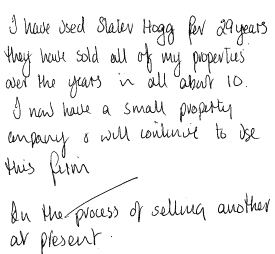 I have used Slater Hogg for 29 years
they have sold all of my properties
over the years in all about 10.
I now have a small property
company & will continue to use
this firm
In the process of selling another
at present.